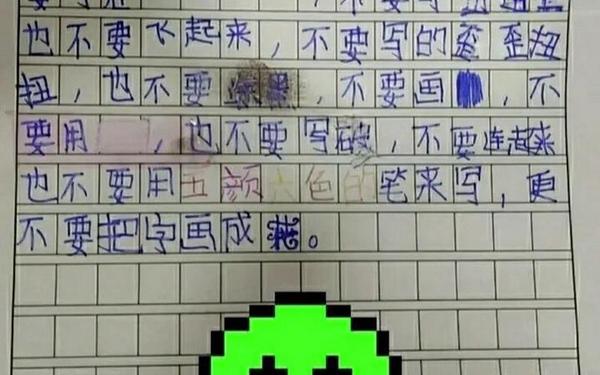 也不要飞起来，不要写的歪歪扭
扭，也不要，不要画，不
要用，也不要写破，不要连起来
也不要用五颜六色的笔来写，更
不要把字画成花。